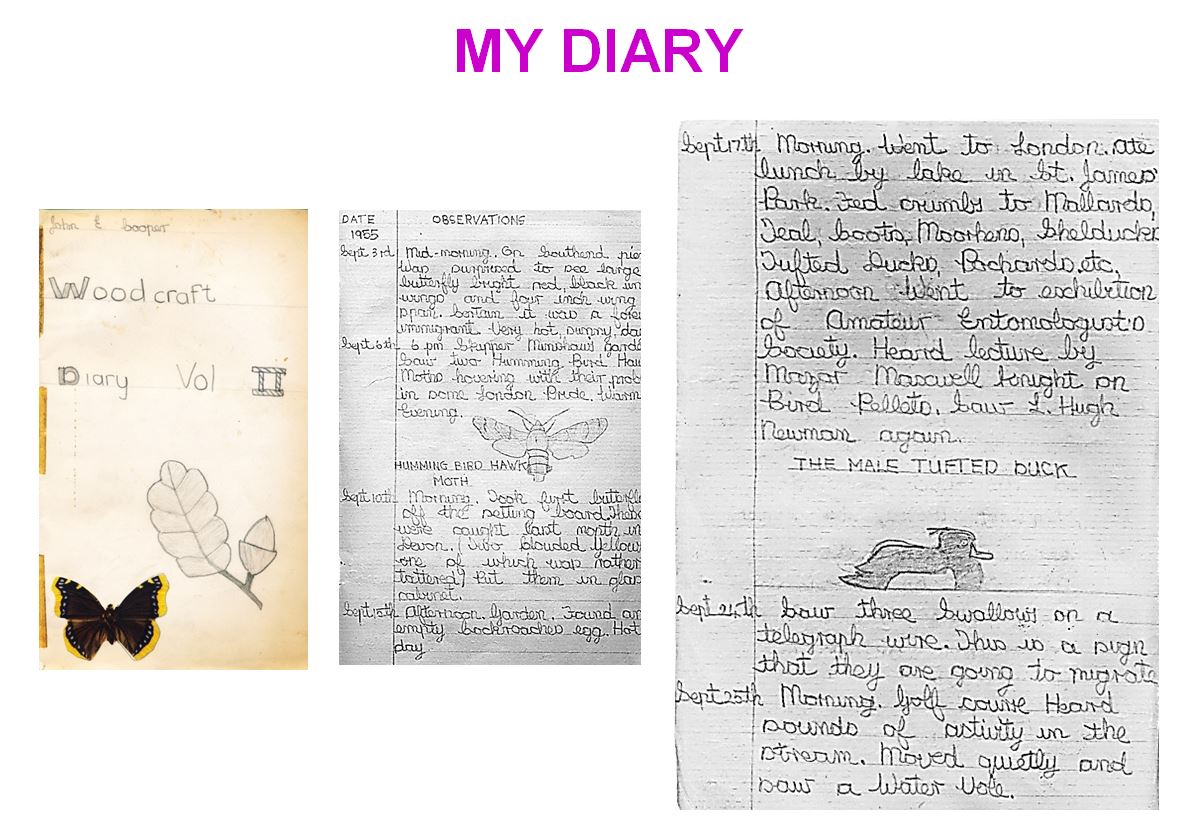 MY DIARY
John E Cooper
Woodcraft
Diary Vol II
DATE OBSERVATIONS
1955
Sept 3rd Mid-morning. On Southend pier
Was surprised to see large
butterfly bright red, black in
wings and four inch wing
span. Certain it was a
immigrant. Very hot, sunny day
Sept 6th 6 pm Skipper Minshaw's
Saw two Humming Bird Haw
Moths hovering with their prob
in some London Pride. Warm
Evening.
HUMMING BIRD HAWK
MOTH
Sept 10th Morning. Took first butterfl
off the setting board. These
were caught last month in
Devon. (Two Clouded Yellows
one of which was rather
tattered) Put them in glass
cabinet.
Sept 15th Afternoon. Garden. Found an
empty cockroaches egg. Hot
day
Sept 17th Morning. Went to London. Ate
lunch by lake in St. James'
Park. Fed crumbs to Mallards,
Teal, Coots, Moorhens, Shelducks
Tufted Ducks, Pochards, etc,
Afternoon Went to exhibition
of Amateur Entomologist's
Society. Heard lecture by
Maxwell Knight on
Bird Pellets. Saw L. Hugh
Newman again.
THE MALE TUFTED DUCK
Sept Saw three Swallows on a
telegraph wire. This is a sign
that they are going to migrate
Sept 25th Morning. Golf course Heard
sounds of activity in the
stream. Moved quietly and
saw a Water Vole.